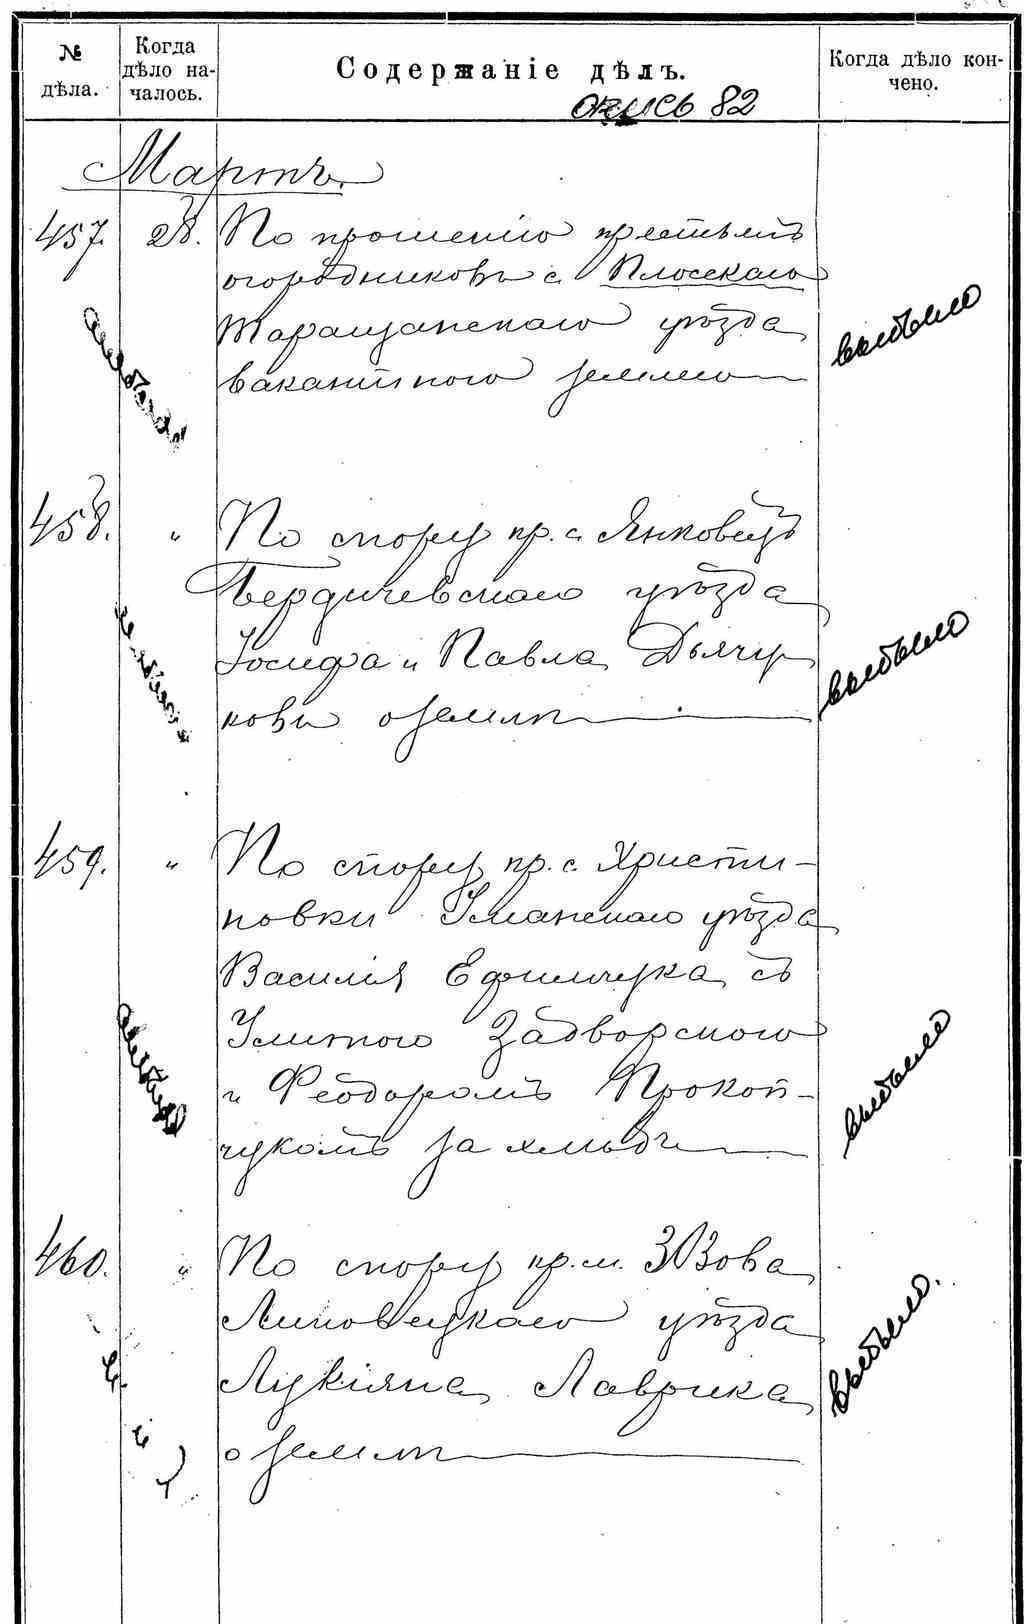 № дѣла.
Когда дѣло началось.
Содержаніе дѣлъ.
Когда дѣло кончено.
опись 82
Мартъ.
457. 28. По прошенію крестьянъ
огородниковъ с. Плоскаго
Таращанскаго уѣзда
вакантного землею
выбыло
458. " По спору кр. с. Янковецъ
Бердичевскаго уѣзда
Іосифа и Павла Дьячу
ковы о землѣ
выбыло
459. " По спору кр. с. Христи-
новки Уманскаго уѣзда
Василія Ефимчука съ
Улитого Задворского
и Феодоромъ Прокоп-
чукомъ за
выбыло
460. " По спору кр. м. Зозова
Липовецкаго уѣзда
Лукіяна Лаврика
о землѣ
выбыло.